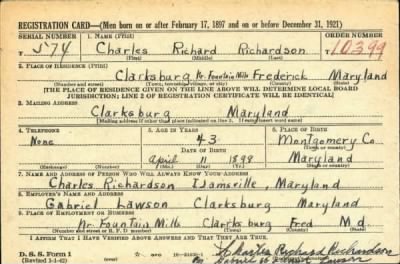 REGISTRATION CARD—(Men born on or after February 17, 1897 and on or before December 31, 1921)
SERIAL NUMBER 1. NAME (Print) ORDER NUMBER
T 574 Charles Richard Richardson 10399
(First) (Middle) (Last)
2. PLACE OF RESIDENCE (Print)
Clarksburg Nr. Fountain Mills Frederick Maryland
(Number and street) (Town, township, village, or city) (County) (State)
[THE PLACE OF RESIDENCE GIVEN ON THE LINE ABOVE WILL DETERMINE LOCAL BOARD
JURISDICTION; LINE 2 OF REGISTRATION CERTIFICATE WILL BE IDENTICAL]
3. MAILING ADDRESS
Clarksburg Maryland
[Mailing address if other than place indicated on line 2. If same insert word same]
4. TELEPHONE 5. AGE IN YEARS 6. PLACE OF BIRTH
None 43 Montgomery Co.
DATE OF BIRTH (Town or county)
April 11 1898 Maryland
(Exchange) (Number) (Mo.) (Day) (Yr.) (State or country)
7. NAME AND ADDRESS OF PERSON WHO WILL ALWAYS KNOW YOUR ADDRESS
Charles Richardson Ijamsville Maryland
8. EMPLOYER'S NAME AND ADDRESS
Gabriel Lawson Clarksburg Maryland
9. PLACE OF EMPLOYMENT OR BUSINESS
Nr. Fountain Mills Clarksburg Fred Md.
(Number and street or R. F. D. number) (Town) (County) (State)
I AFFIRM THAT I HAVE VERIFIED ABOVE ANSWERS AND THAT THEY ARE TRUE.
D. S. S. Form 1 Charles Richard Richardson
(Revised 1-1-42) (over)